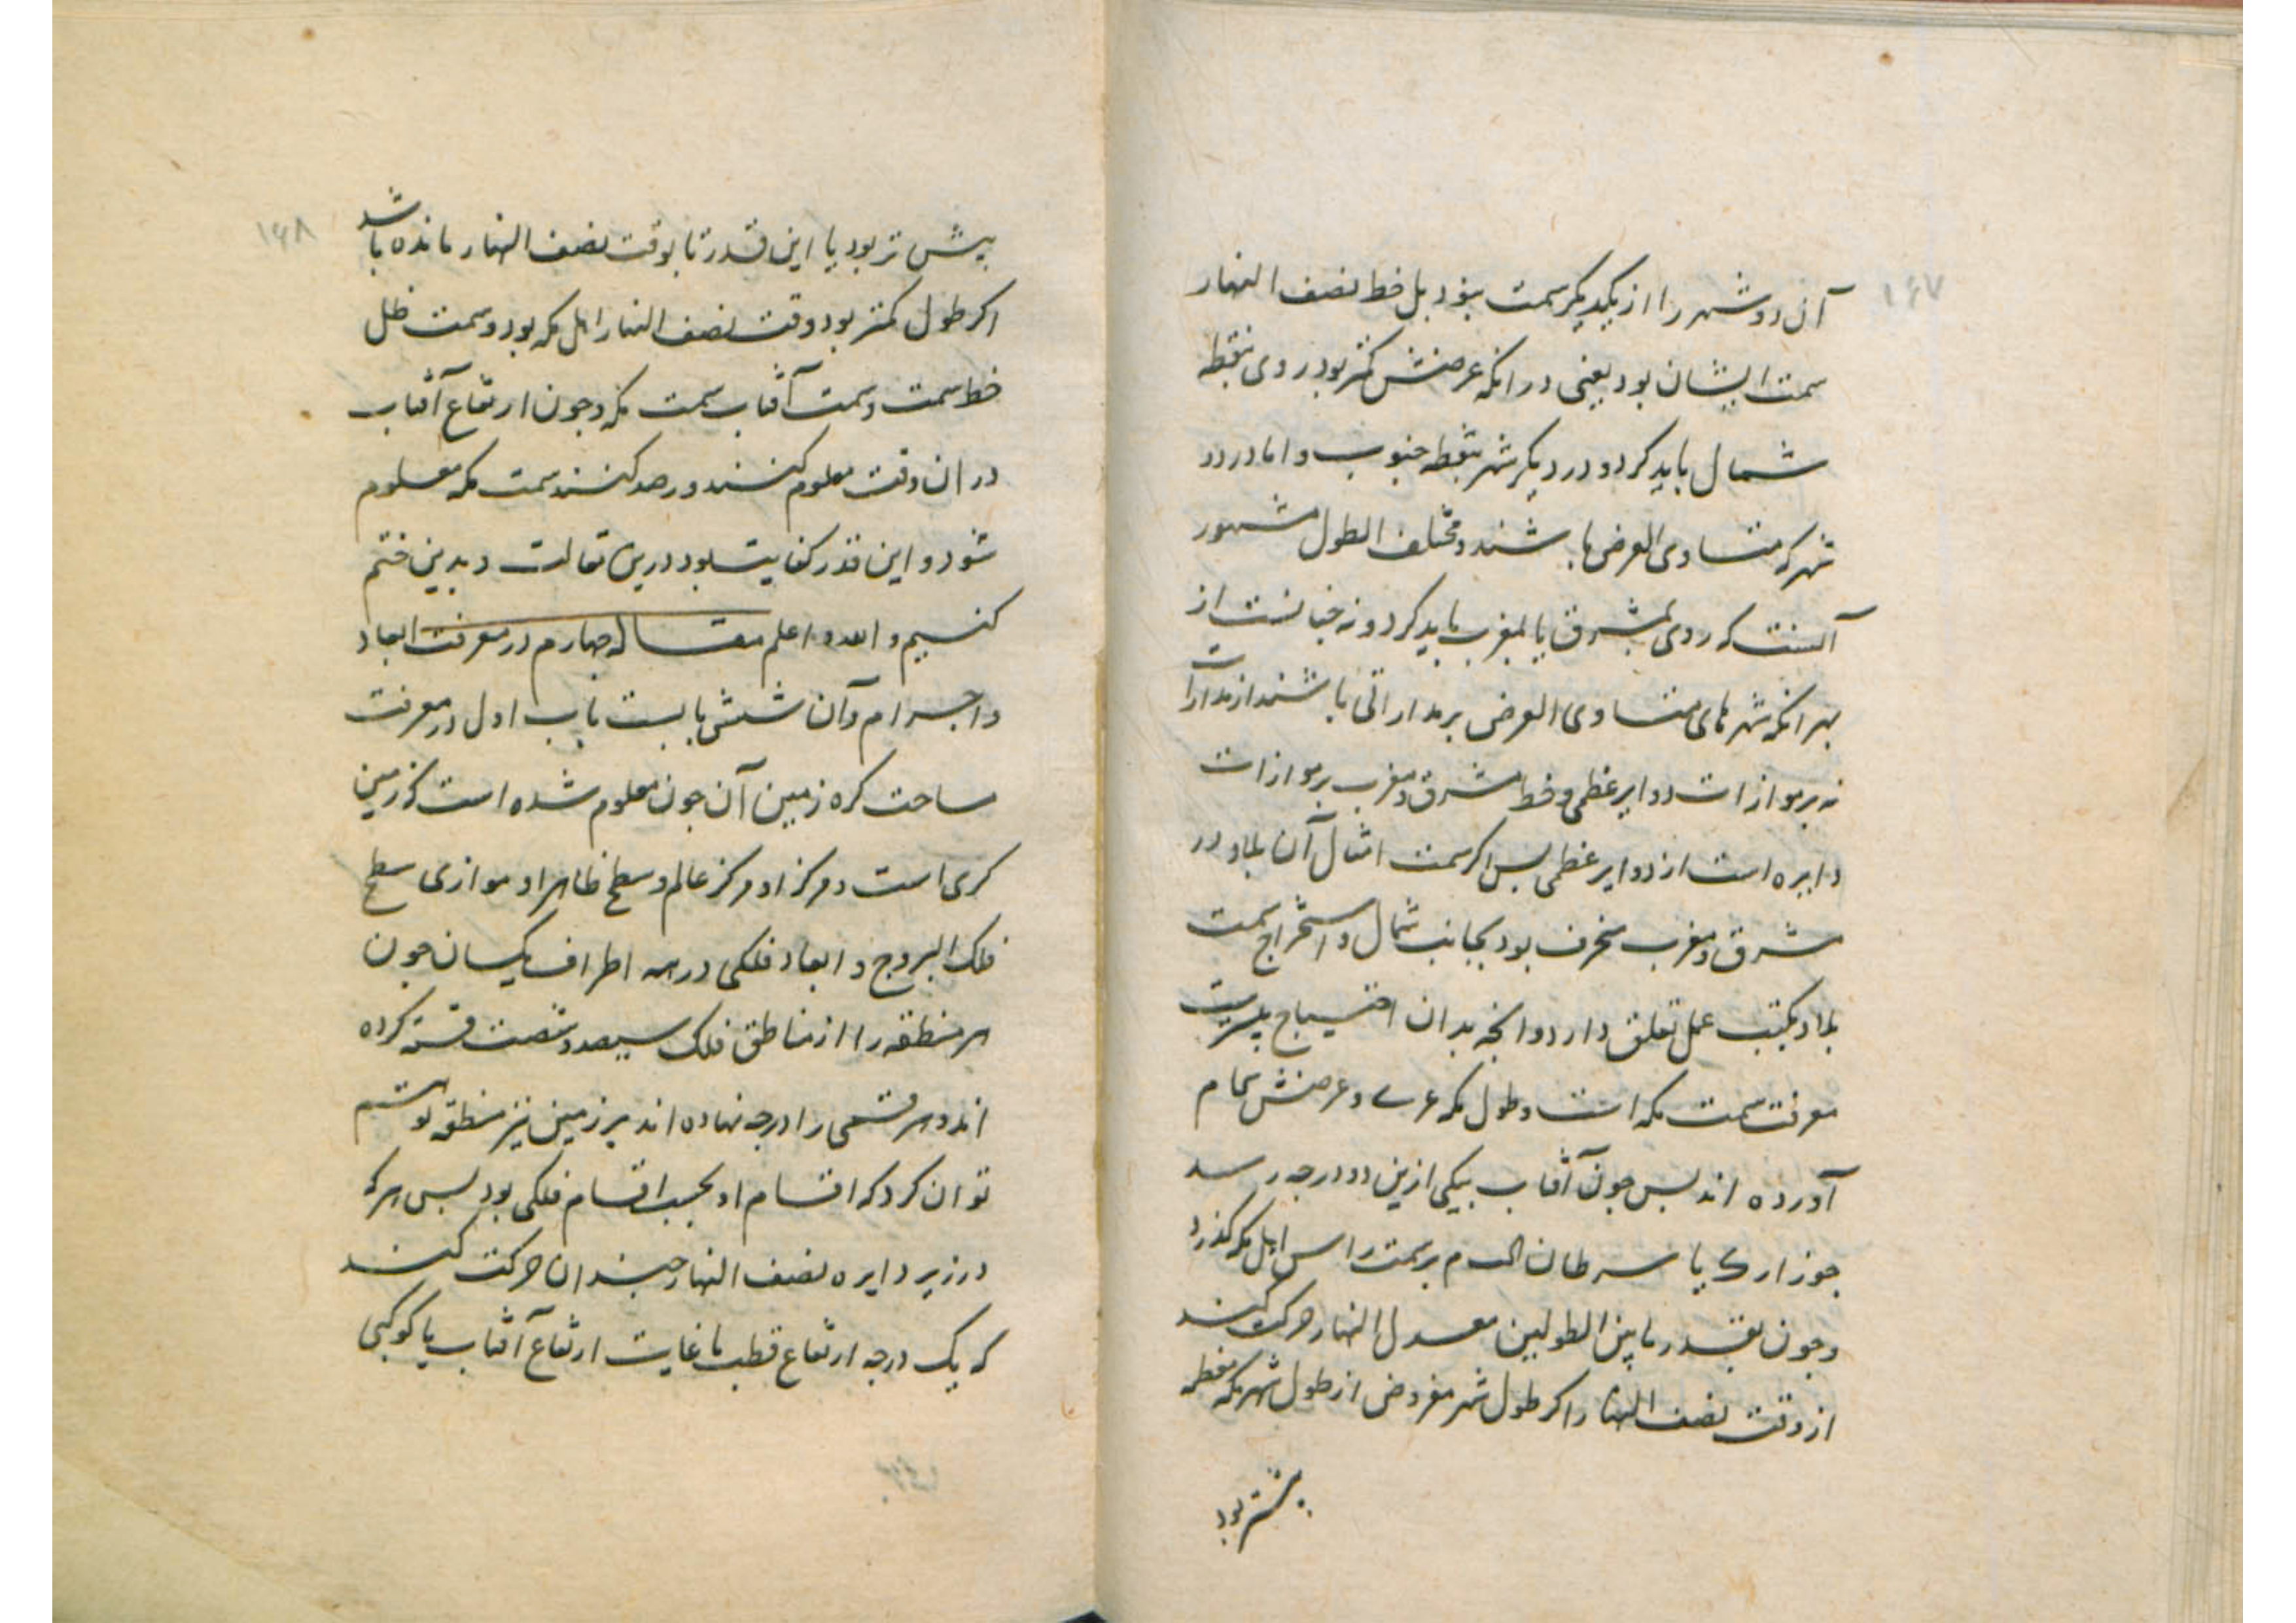 ۱۶۷
آن دو شهر را از یکدیگر سمت نبود بل خط نصف النهار
سمت ایشان بود یعنی در انکه عرضش کمتر بود روی بنقطه
شمال باید کرد و در دیکر شهر بنقطه جنوب و اما در دو
شهر که متساوی العرض باشند و مختلف الطول مشهور
آنست که روی بمشرق یا بمغرب باید کرد و نه جنانست از
بهر انکه شهرهای متساوی العرض بر مداراتی باشند از مدارات
نه بر موازات دوایر عظمی و خط مشرق و مغرب بر موازات
دایره است از دوایر عظمی بس اکر سمت امثال آن بلاد در
مشرق و مغرب منحرف بود بجانب شمال و استخراج سمت
بلاد بکتب عمل تعلق دارد و انجه بدان احتیاج
معرفت سمت مکه است و طول مکه عر و عرضش کا م
آورده اند بس جون آفتاب بیکی ازین دو درجه رسد
جوزا رک یا سرطان الدم بر سمت راس اهل مکه کذرد
و جون بقدر ما بین الطولین معدل النهار حرکت کند
از وقت نصف النهار اکر طول شهر مفروض از طول شهر مکه معظمه
بیشتر بود
۱۶۸
بیش تر بود یا این قدر تا بوقت نصف النهار مانده باشد
اکر طول کمتر بود وقت نصف النهار اهل مکه بود و سمت ظل
خط سمت و سمت آفتاب سمت مکه و جون ارتفاع آفتاب
در ان وقت معلوم کنند و رصد کنند سمت مکه معلوم
شود و این قدر کفایت بود درین مقالت و بدین ختم
کنیم و الله اعلم مقاله جهارم در معرفت ابعاد
و اجرام و آن شش با بست باب اول در معرفت
ساحت کره زمین آن جون معلوم شده است که زمین
کری است و مرکز او مرکز عالم و سطح ظاهر او موازی سطح
فلک البروج و ابعاد فلکی در همه اطراف یکسان جون
هر منطقه را از مناطق فلک سیصد و شصت قسم کرده
اند و هر قسمی را درجه نهاده اند بر زمین نیز منطقه توهم
توان کرد که اقسام او بحسب اقسام فلکی بود بس هر که
در زیر دایره نصف النهار جندان حرکت کند
که یک درجه ارتفاع قطب یا غایت ارتفاع آفتاب یا کوکبی